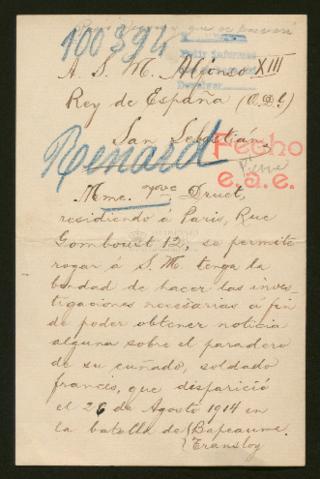 100394
Pedir informes
A. S. M. Alfonso XIII
Rey de España (Q.D.G)
San Sebastian
Fecho
e.a.e.
Renard
Mme. Yove Druet,
residiendo á Paris, Rue
Gomboust 12, se permite
rogar á S. M. tenga la
bondad de hacer las inves-
tigaciones necesarias á fin
de poder obtener noticia
alguna sobre el paradero
de su cuñado, soldado
francés, que disparició
el 26 de Agosto 1914 en
la batalla de (Bapeaume.
(Transloy